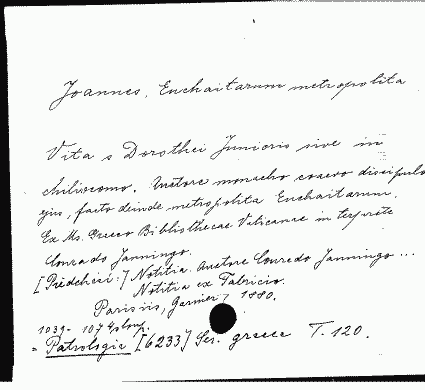 Joannes, Euchaitarum metropolita
Vita s Dorothei Junioris sive in
chiliocomo. Auctore monacho coaevo discipulo
ejus, facto deinde metropolita Euchaitarum.
Ex Ms. Graeco Bibliothecae Vaticanae in terprete
Conrado Janningo.
[Praecedit:] Notitia. Auctore Conredo Janningo ...
Notitia ex Fabricio.
Parisiis, Garnier, 1880.
1039-1074
= Patrologia [6233] Ser. graeca T. 120.